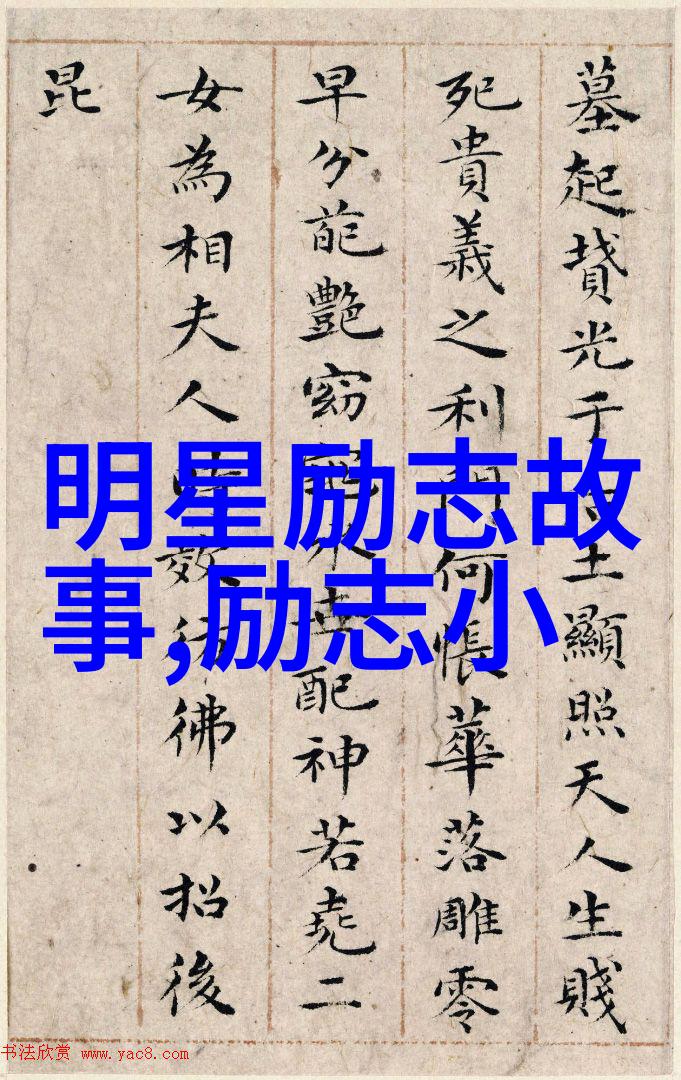 墓起墳光于土顯照天人生賤
死貴義之利門何悵華落雕零
早分葩艷窈永世配神若堯二
女為相夫人效彷彿以招後
昆
明星励志故
事,励志小
书法欣赏 www.yac8.com